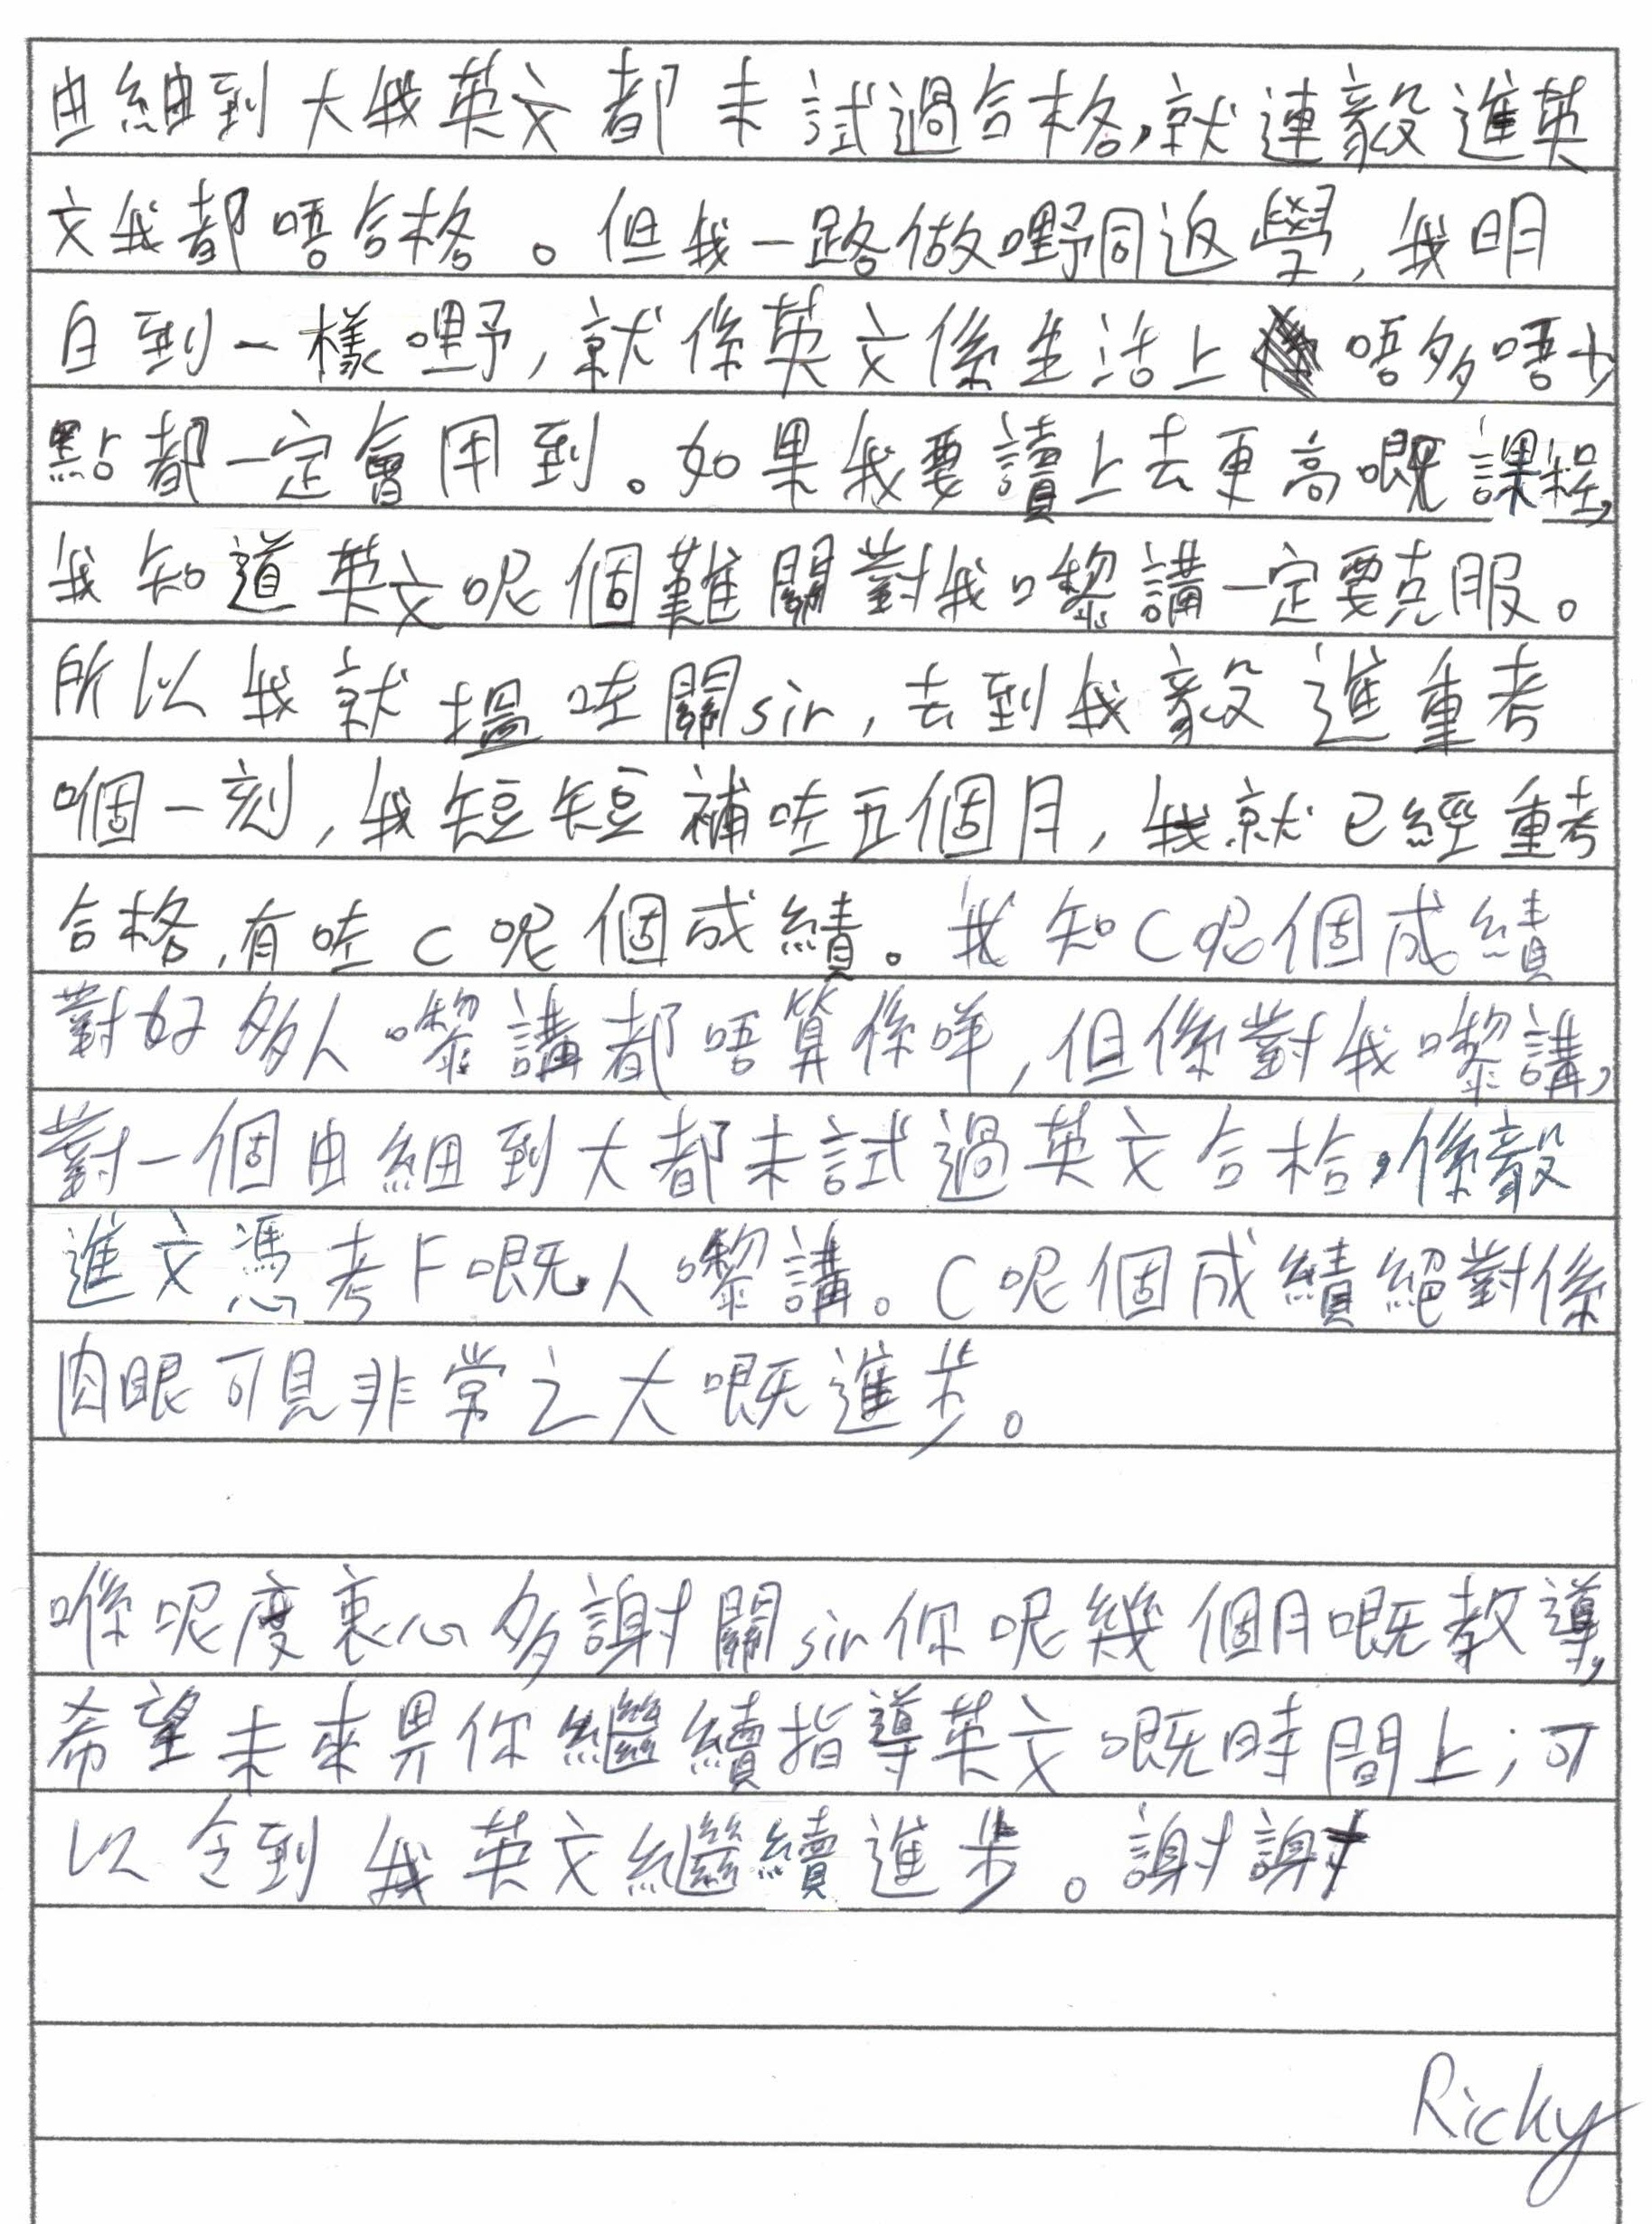 由細到大我英文都未試過合格,就連毅進英
文我都唔合格。但我一路做嘢同返學,我明
白到一樣嘢,就係英文係生活上唔多唔少
點都一定會用到。如果我要讀上去更高嘅課程,
我知道英文呢個難關對我嚟講一定要克服。
所以我就搵咗關sir,去到我毅進重考
嗰一刻,我短短補咗五個月,我就已經重考
合格,有咗C呢個成績。我知C呢個成績
對好多人嚟講都唔算係咩,但係對我嚟講,
對一個由細到大都未試過英文合格,係毅
進文憑考F嘅人嚟講。C呢個成績絕對係
肉眼可見非常之大嘅進步。
喺呢度衷心多謝關sir你呢幾個月嘅教導,
希望未來畀你繼續指導英文嘅時間上;可
以令到我英文繼續進步。謝謝
Ricky